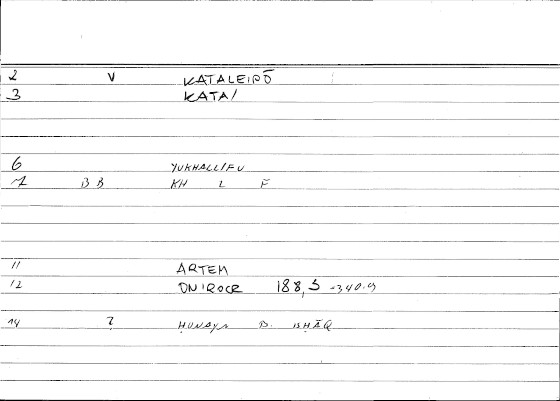 2 V KATALEIPŌ
3 KATA/
6 YUKHALLIFU
7 BB KH L F
11 ARTEM
12 ONIROCR 188,5 -340.4
14 ? ḤUNAYN B. ISHĀQ